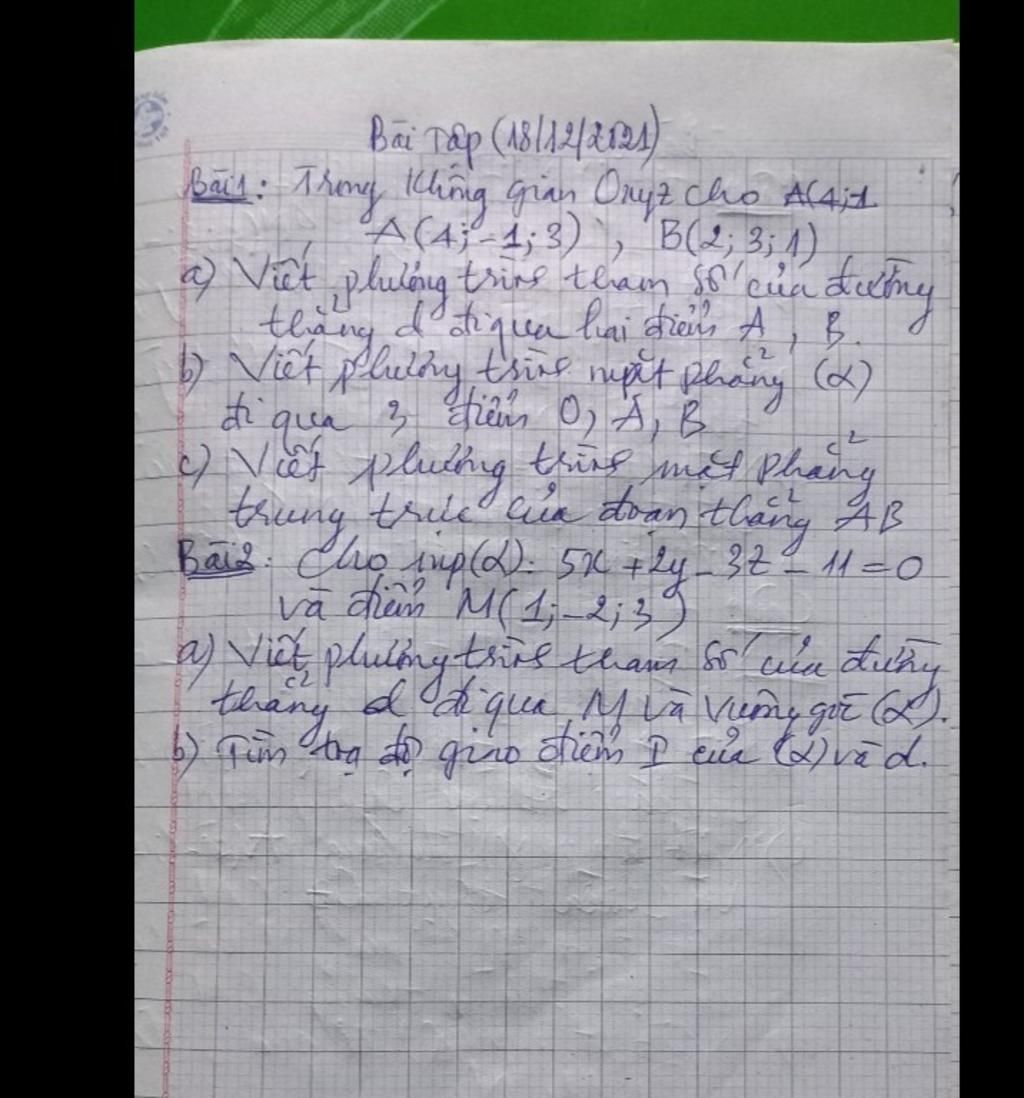 Bài Tập (18/12/2021)
Bài 1: Trong không gian Oxyz cho A(4;-1
A(4;-1;3), B(2;3;1)
a) Viết phương trình tham số của đường
thẳng d đi qua hai điểm A, B.
b) Viết phương trình mặt phẳng (α)
đi qua 3 điểm O, A, B
c) Viết phương trình mặt phẳng
trung trực của đoạn thẳng AB
Bài 2: Cho mp(α): 5x + 2y - 3z - 11 = 0
và điểm M(1;-2;3)
a) Viết phương trình tham số của đường
thẳng d đi qua M và vuông góc (α).
b) Tìm toạ độ giao điểm I của (α) và d.